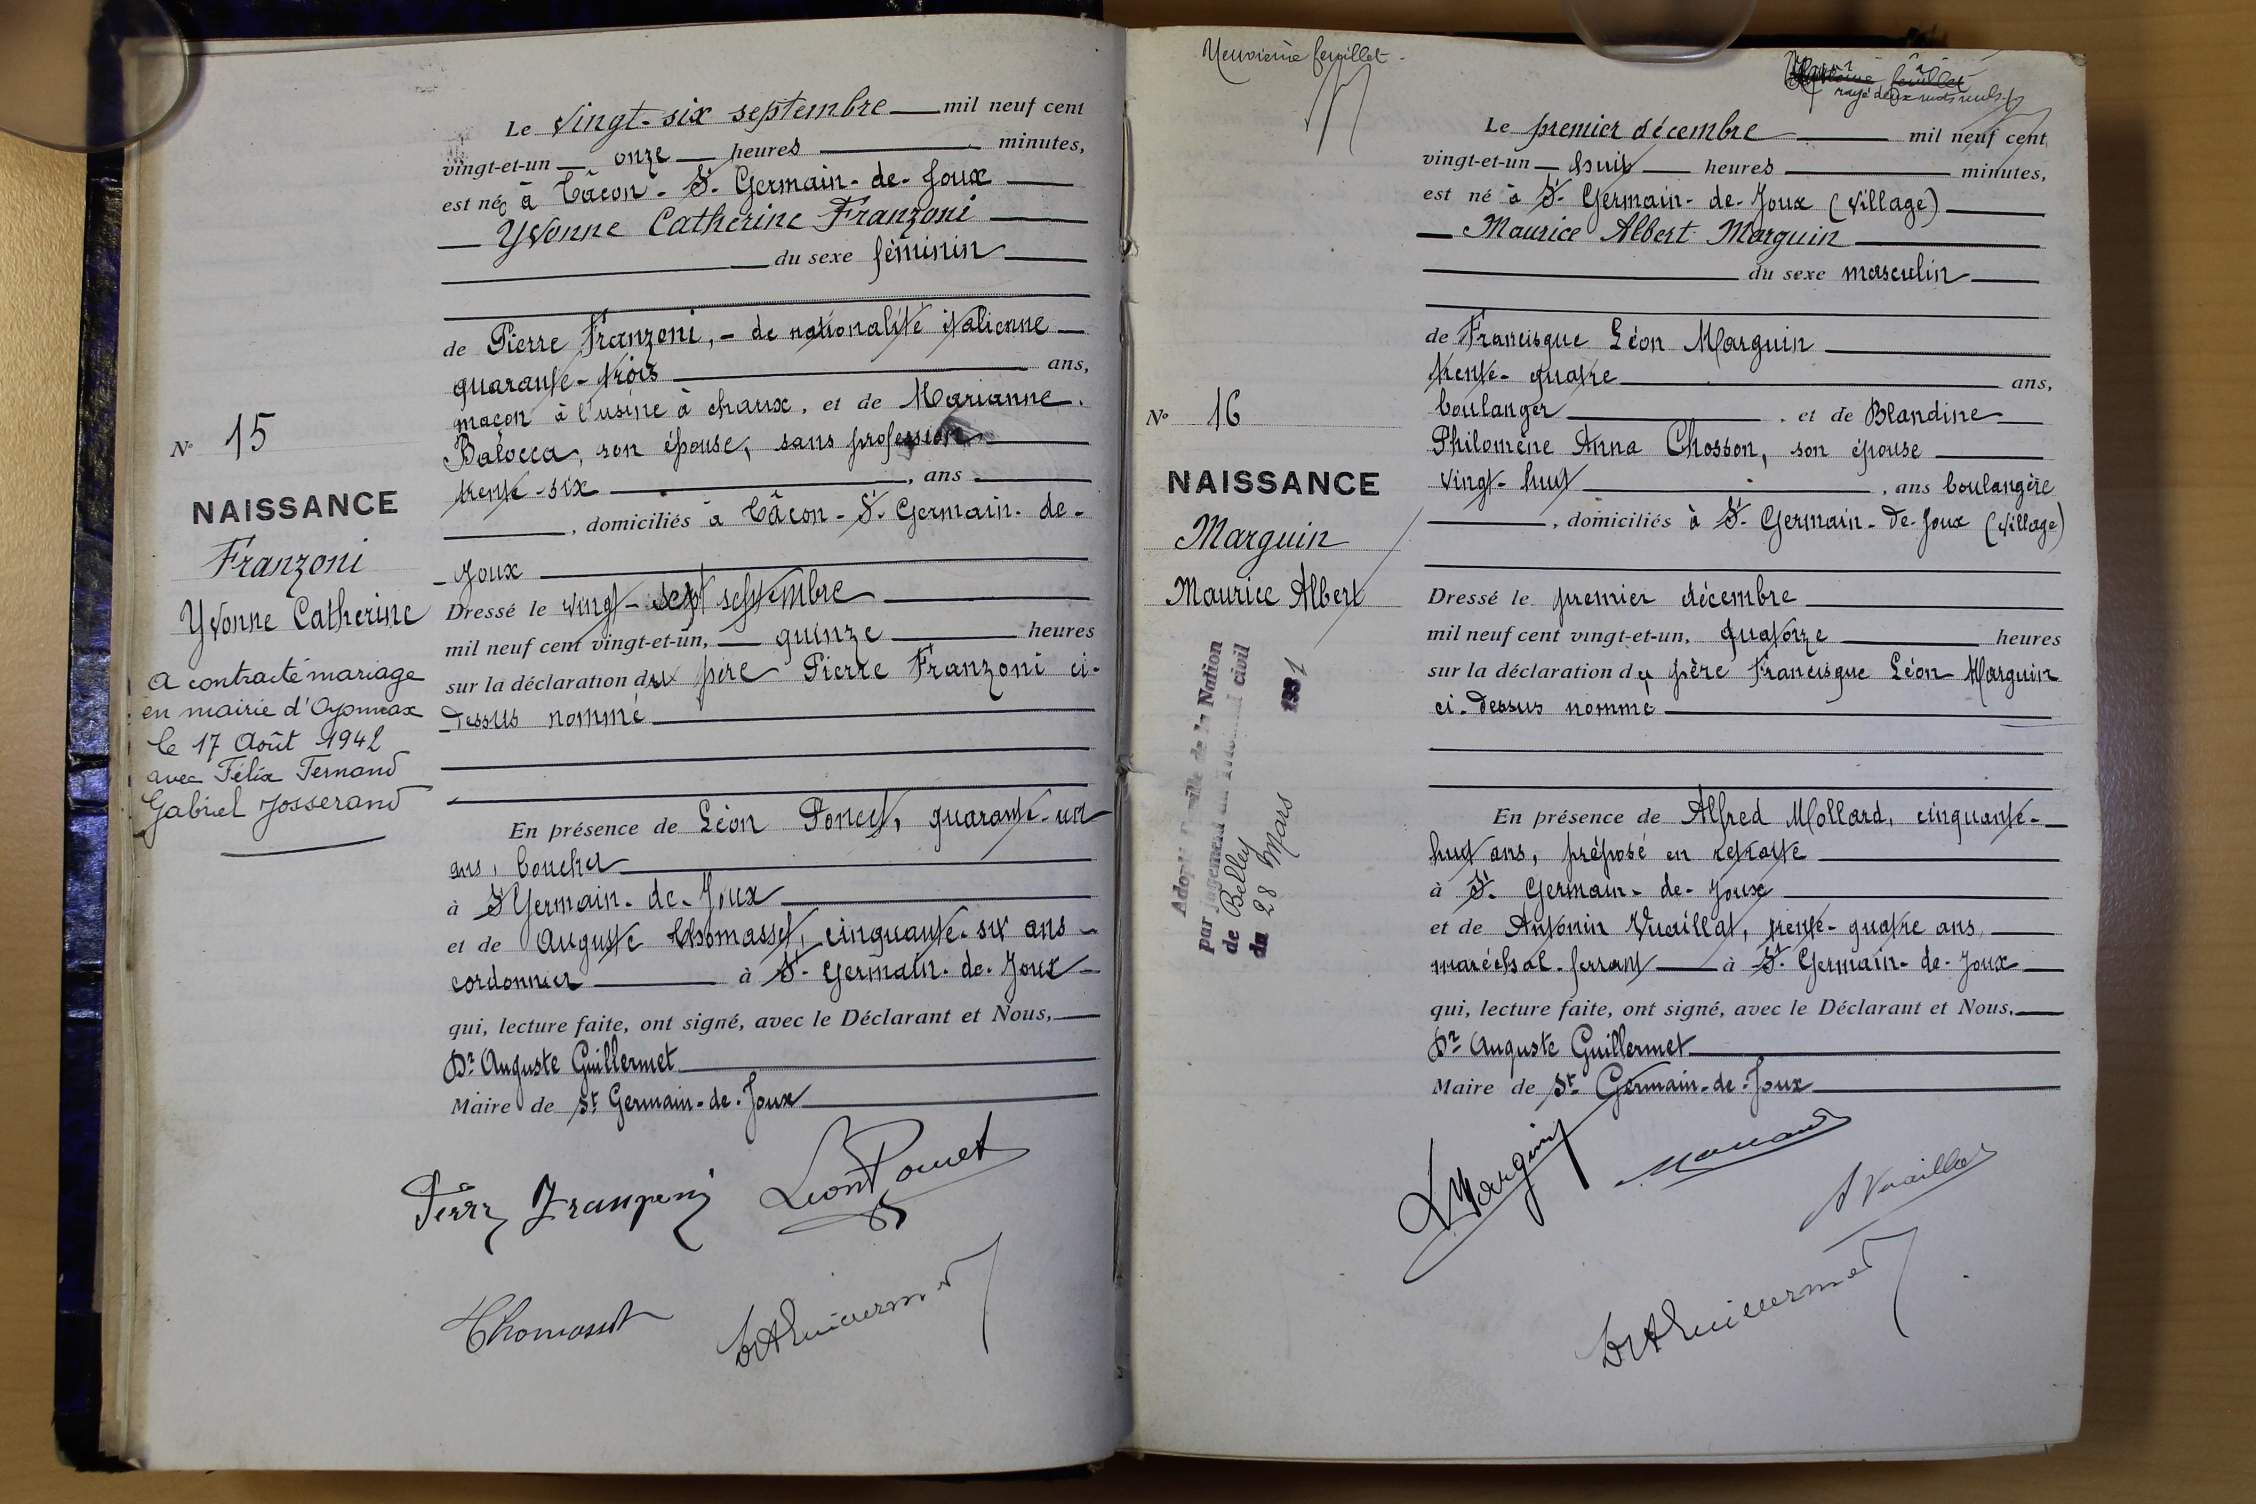 Le vingt-six septembre mil neuf cent
vingt-et-un onze heures minutes,
est née à Tâcon - St- Germain-de-Joux
Yvonne Catherine Franzoni
du sexe féminin
de Pierre Franzoni, - de nationalité italienne
quarante-trois ans,
maçon à l'usine à chaux, et de Marianne
Balocca, son épouse, sans profession
trente-six , ans
, domiciliés à Tâcon - St- Germain-de-
Joux
Dressé le vingt-sept septembre
mil neuf cent vingt-et-un, quinze heures
sur la déclaration du père Pierre Franzoni ci-
dessus nommé
En présence de Léon Poncet, quarante-un
ans, boucher
à St Germain-de-Joux
et de Auguste Thomasset, cinquante-six ans
cordonnier à St- Germain-de-Joux
qui, lecture faite, ont signé, avec le Déclarant et Nous,
Dr Auguste Guillermet
Maire de St Germain-de-Joux
No 15
NAISSANCE
Franzoni
Yvonne Catherine
A contracté mariage
en mairie d'Oyonnax
le 17 Août 1942
avec Félix Fernand
Gabriel Josserand
Léon Poncet
Thomasset
Dr A Guillermet
Neuvième feuillet.
feuillet
rayé deux mots nuls
Le premier décembre mil neuf cent
vingt-et-un huit heures minutes,
est né à St- Germain-de-Joux (village)
Maurice Albert Marguin
du sexe masculin
de Francisque Léon Marguin
trente-quatre ans,
boulanger , et de Blandine
Philomène Anna Chosson, son épouse
vingt-huit , ans boulangère
, domiciliés à St- Germain-de-Joux (village)
Dressé le premier décembre
mil neuf cent vingt-et-un, quatorze heures
sur la déclaration du père Francisque Léon Marguin
ci-dessus nommé
En présence de Alfred Mollard, cinquante-
huit ans, préposé en retraite
à St- Germain-de-Joux
et de Antonin Vuaillat, trente-quatre ans
maréchal-ferrant à St- Germain-de-Joux
qui, lecture faite, ont signé, avec le Déclarant et Nous,
Dr Auguste Guillermet
Maire de St- Germain-de-Joux
No 16
NAISSANCE
Marguin
Maurice Albert
Adopté Pupille de la Nation
par jugement du Tribunal civil
de Belley
du 28 Mars
L Marguin
Mollard
A Vuaillat
Dr A Guillermet